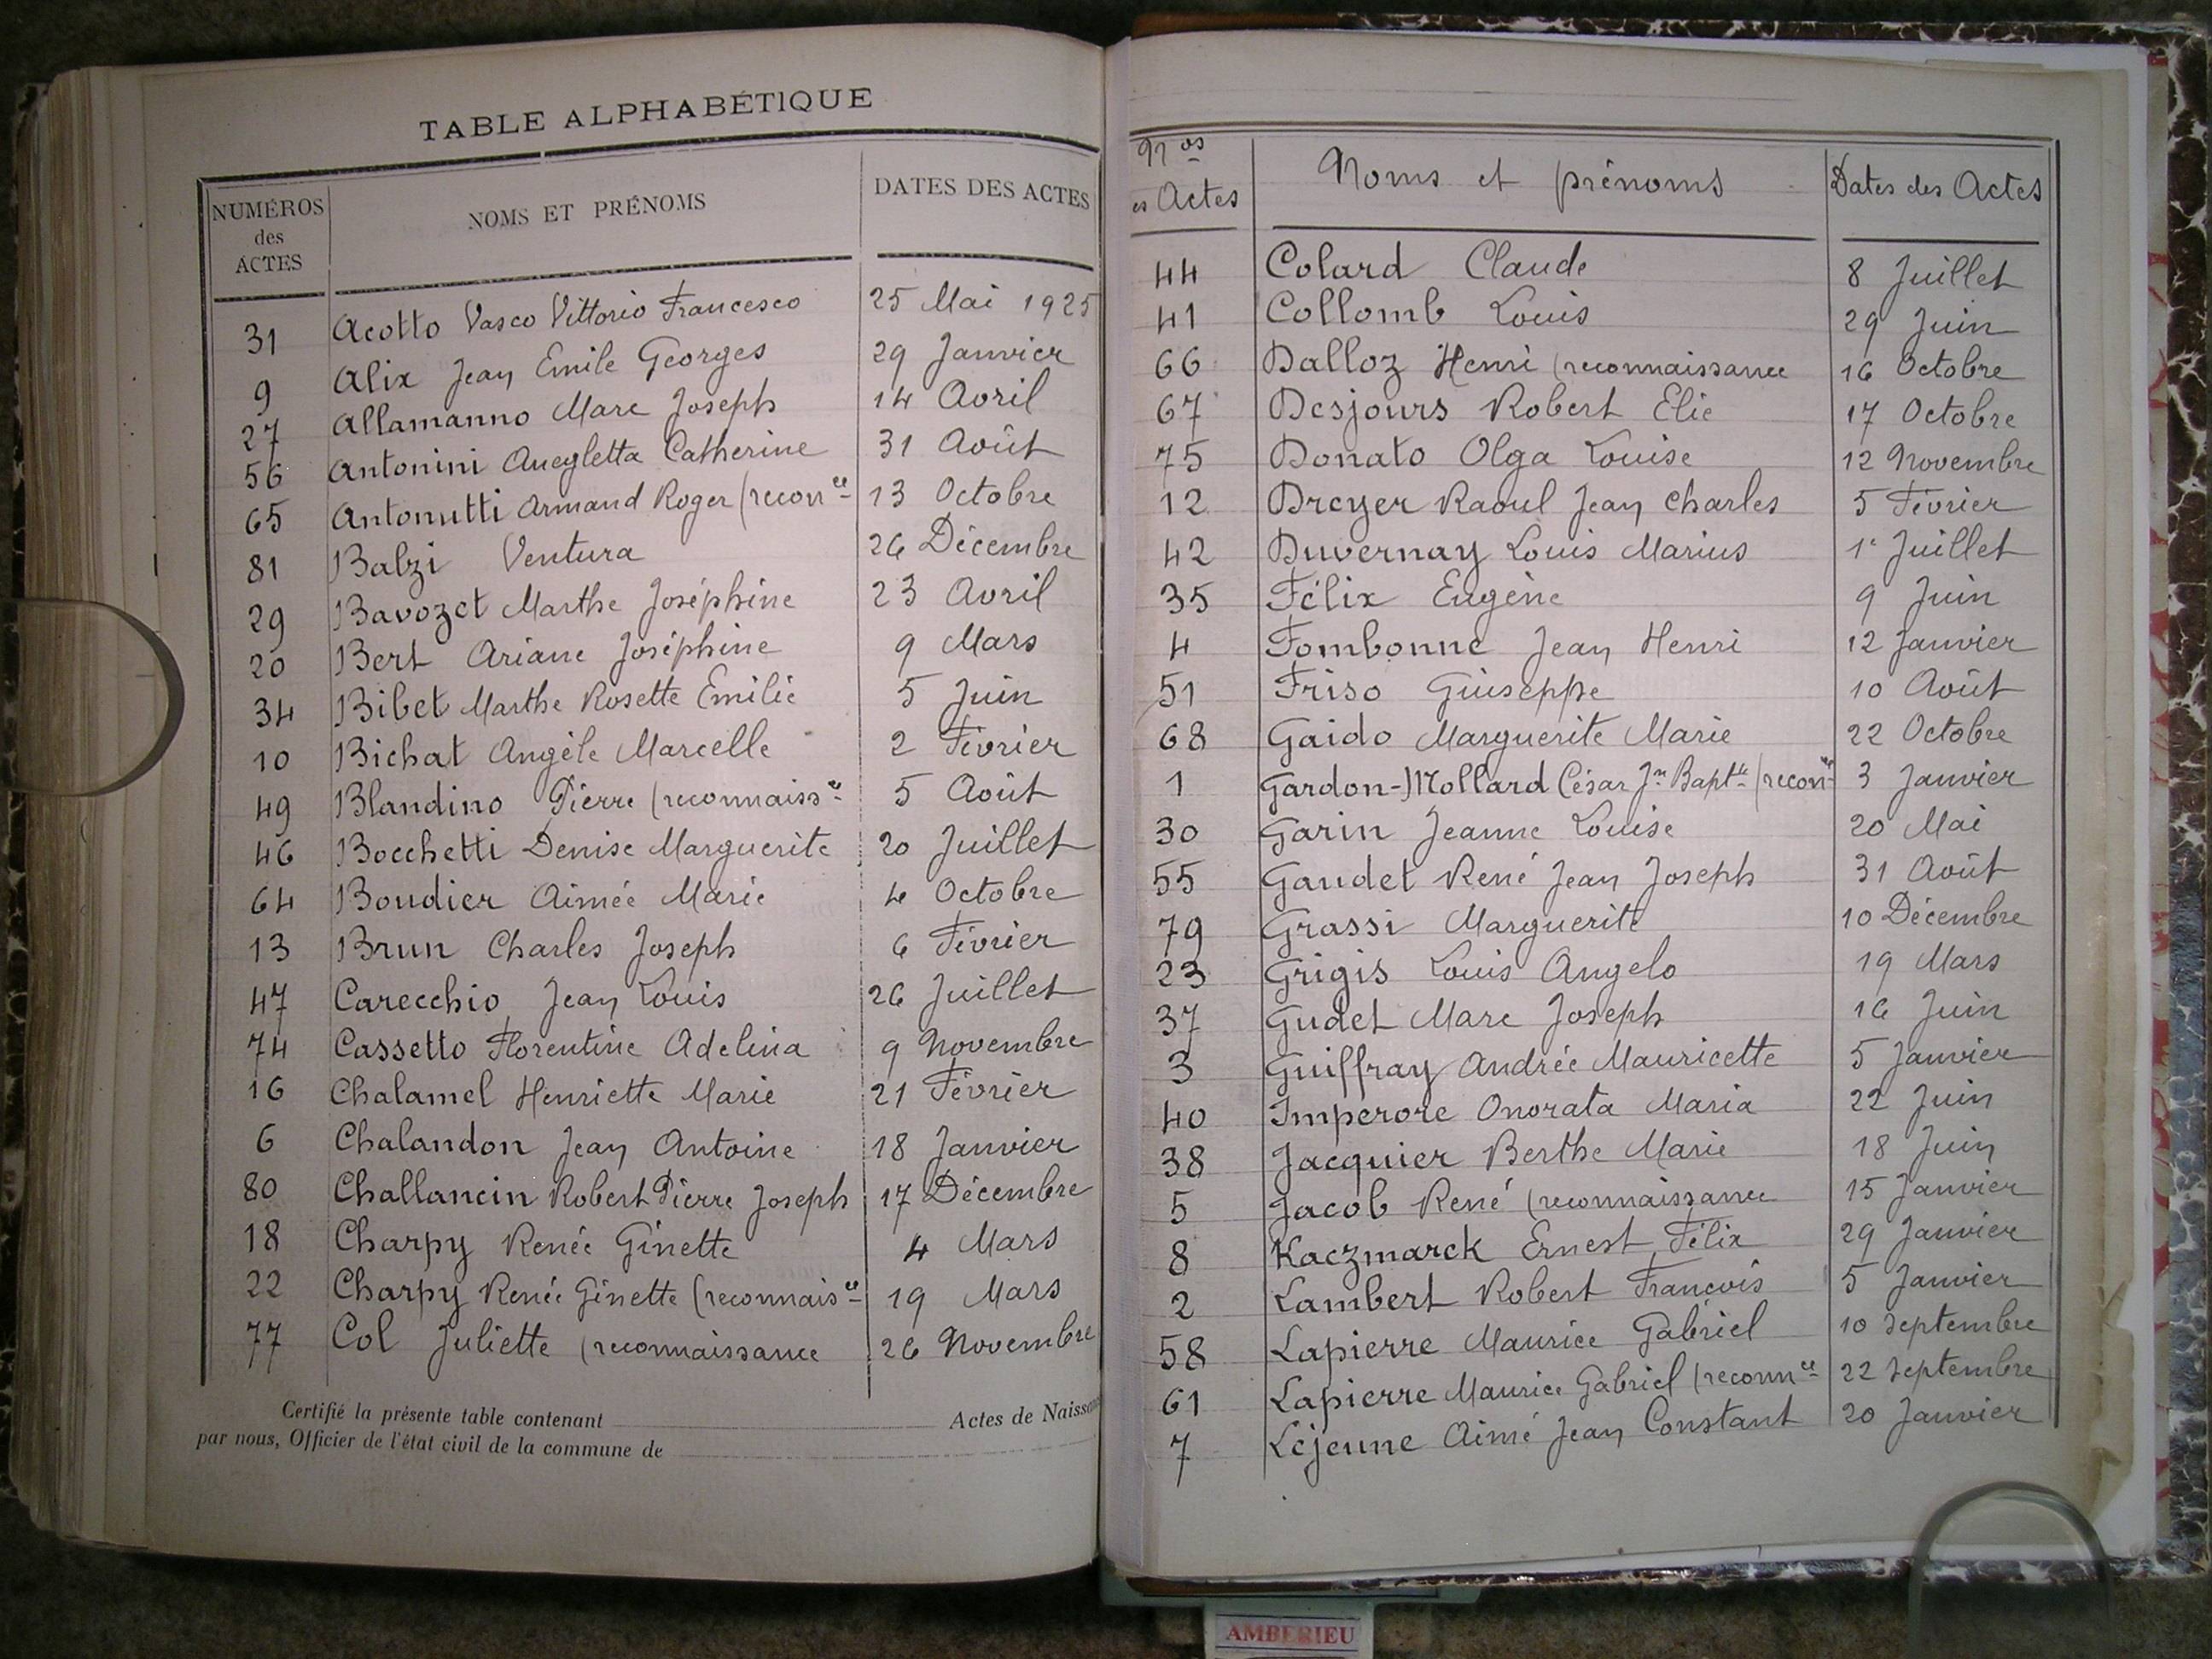 TABLE ALPHABÉTIQUE
NUMÉROS des ACTES NOMS ET PRÉNOMS DATES DES ACTES
31 Acotto Vasco Vittorio Francesco 25 Mai 1925
9 Alix Jean Emile Georges 29 Janvier
27 Allamanno Marc Joseph 14 Avril
56 Antonini Catherine 31 Août
65 Antonutti Armand Roger (reconce 13 Octobre
81 Balzi Ventura 26 Décembre
29 Bavozet Marthe Joséphine 23 Avril
20 Bert Ariane Joséphine 9 Mars
34 Bibet Marthe Rosette Emilie 5 Juin
10 Bichat Angèle Marcelle 2 Février
49 Blandino Pierre (reconnaissce 5 Août
46 Bocchetti Denise Marguerite 20 Juillet
64 Boudier Aimée Marie 4 Octobre
13 Brun Charles Joseph 6 Février
47 Carecchio Jean Louis 26 Juillet
74 Cassetto Florentine Adelina 9 Novembre
16 Chalamel Henriette Marie 21 Février
6 Chalandon Jean Antoine 18 Janvier
80 Challancin Robert Pierre Joseph 17 Décembre
18 Charpy Renée Ginette 4 Mars
22 Charpy Renée Ginette (reconnaisce 19 Mars
77 Col Juliette (reconnaissance 26 Novembre
Certifié la présente table contenant Actes de Naissan
par nous, Officier de l'état civil de la commune de
Nos es Actes Noms et prénoms Dates des Actes
44 Colard Claude 8 Juillet
41 Collomb Louis 29 Juin
66 Dalloz Henri (reconnaissance 16 Octobre
67 Desjours Robert Elie 17 Octobre
75 Donato Olga Louise 12 Novembre
12 Dreyer Raoul Jean Charles 5 Février
42 Duvernay Louis Marius 1e Juillet
35 Félix Eugène 9 Juin
4 Fombonne Jean Henri 12 Janvier
51 Friso Giuseppe 10 Août
68 Gaido Marguerite Marie 22 Octobre
1 Gardon-Mollard César Jn Bapte (reconce 3 Janvier
30 Garin Jeanne Louise 20 Mai
55 Gaudet René Jean Joseph 31 Août
79 Grassi Marguerite 10 Décembre
23 Grigis Louis Angelo 19 Mars
37 Gudet Marc Joseph 16 Juin
3 Guiffray Andrée Mauricette 5 Janvier
40 Imperore Onorata Maria 22 Juin
38 Jacquier Berthe Marie 18 Juin
5 Jacob René (reconnaissance 15 Janvier
8 Kaczmarck Ernest Félix 29 Janvier
2 Lambert Robert François 5 Janvier
58 Lapierre Maurice Gabriel 10 Septembre
61 Lapierre Maurice Gabriel (reconnce 22 Septembre
7 Léjeune Aimé Jean Constant 20 Janvier
AMBERIEU